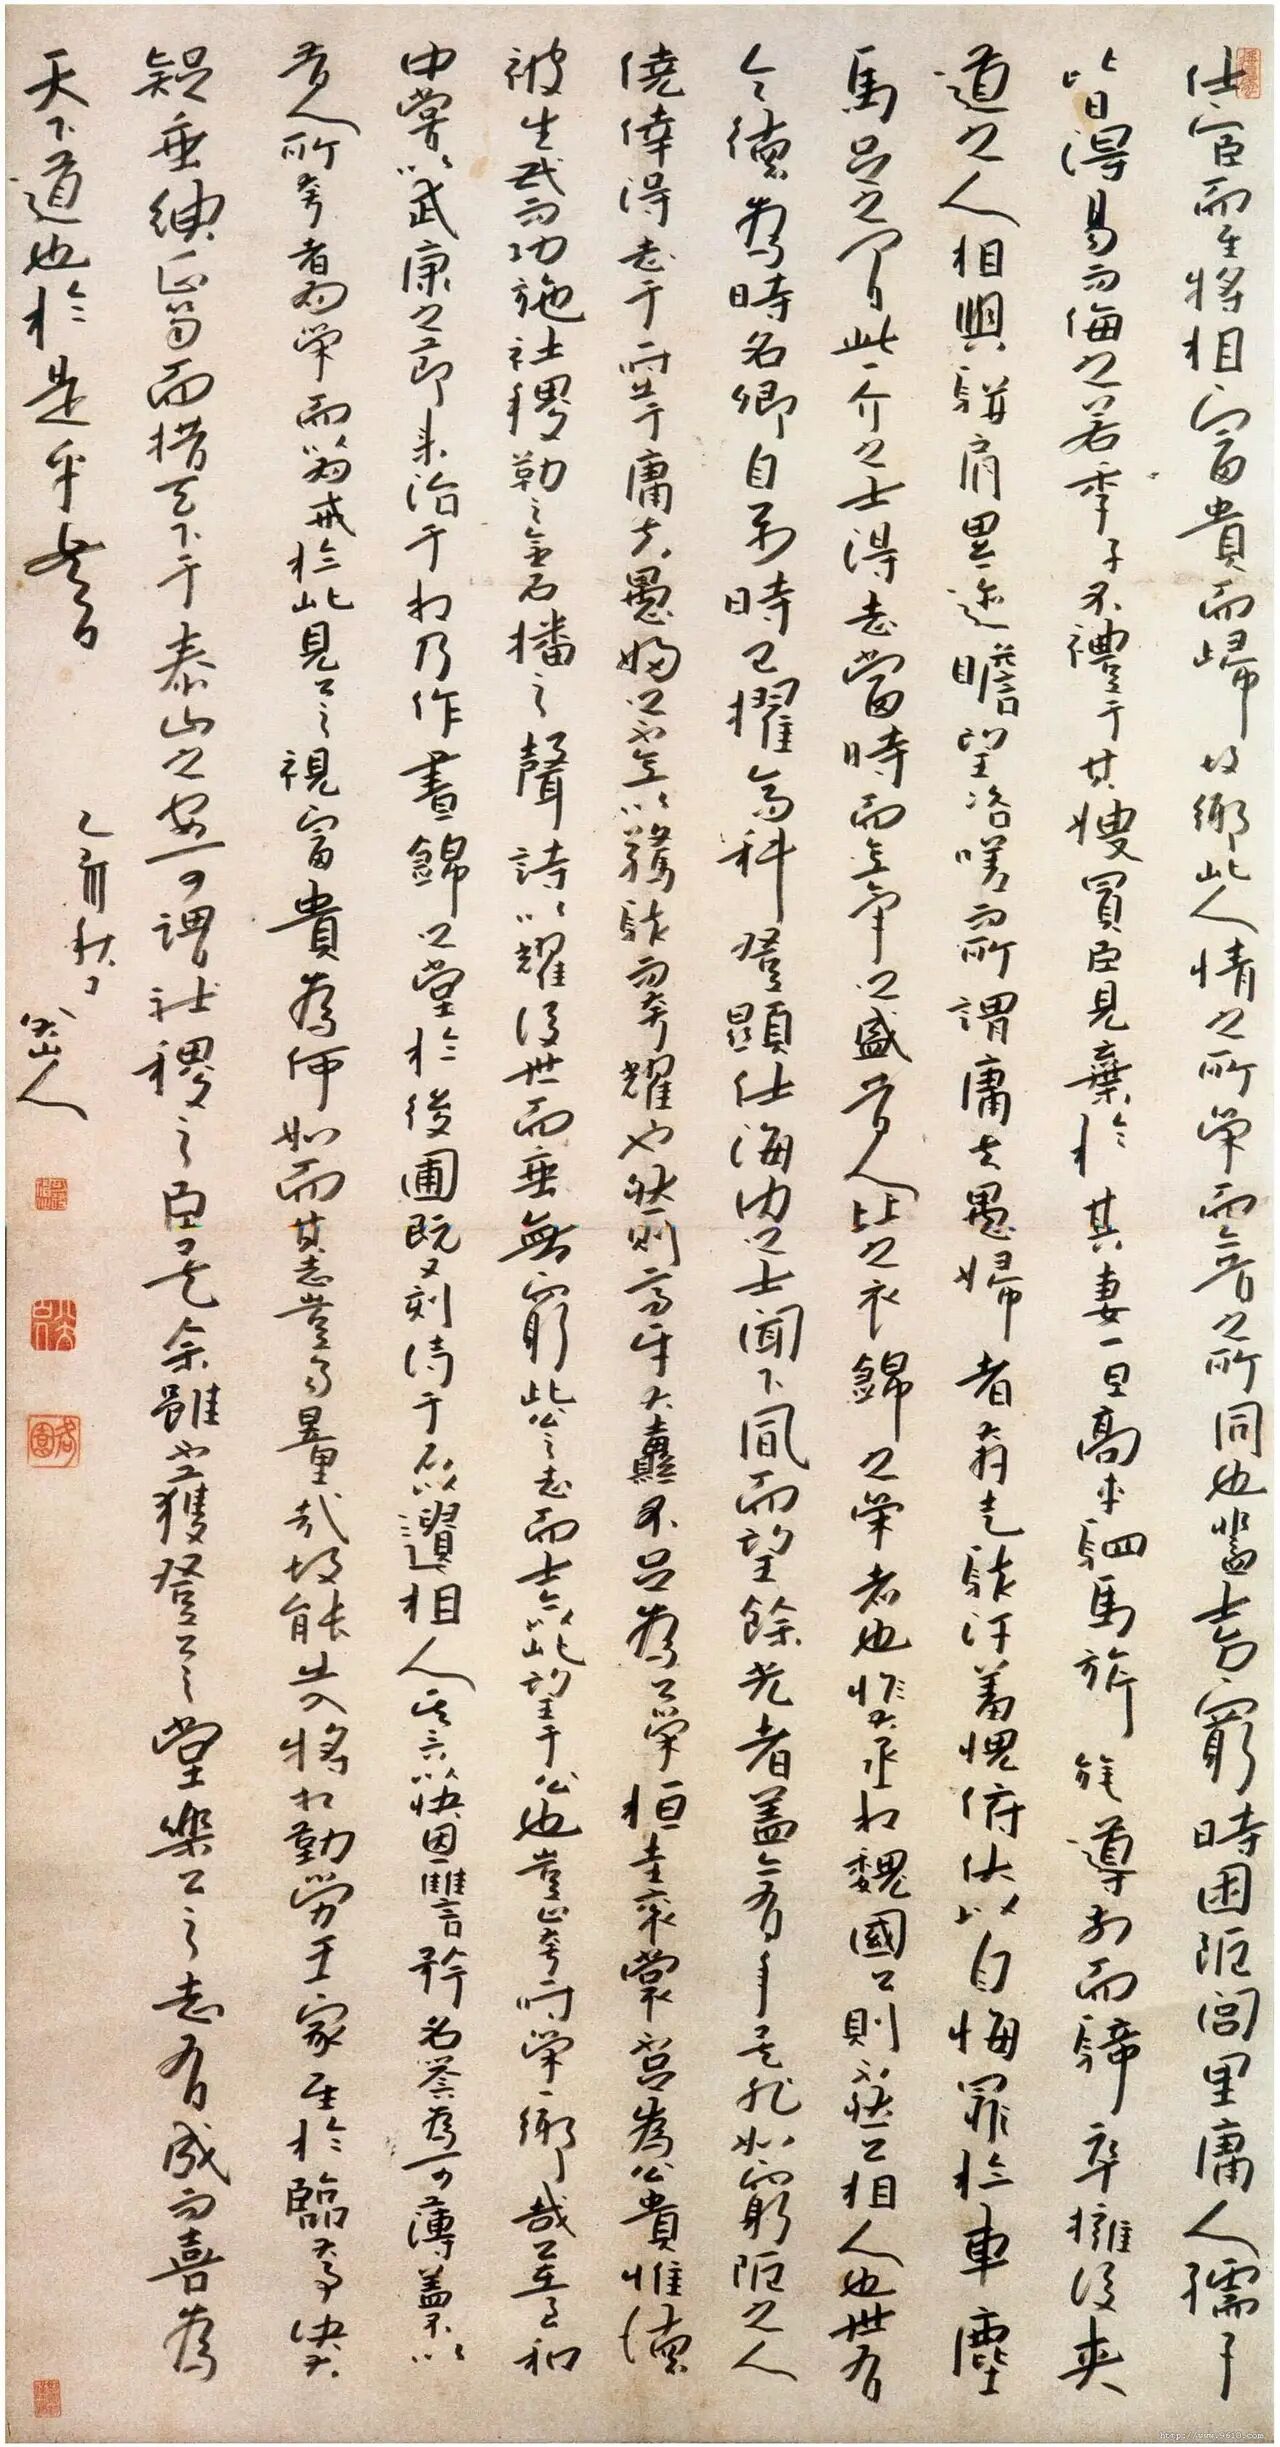 仕宦而至將相富貴而歸故鄉此人情之所榮而今昔之所同也蓋士方窮時困阨閭里庸人孺子
皆得易而侮之若季子不禮于其嫂買臣見棄於其妻一旦高車駟馬旂旄導前而騎卒擁後夾
道之人相與駢肩累迹瞻望咨嗟而所謂庸夫愚婦者奔走駭汗羞愧俯伏以自悔罪於車塵
馬足之間此一介之士得志當時而意氣之盛昔人比之衣錦之榮者也惟大丞相魏國公則不然公相人也世有
令德為時名卿自時已擢高科登顯仕海內之士聞下風而望餘光者蓋亦有年是非如窮阨之人
僥倖得志于一時出于庸夫愚婦之不意以驚駭而夸耀也然則高牙大纛不足為公榮桓圭袞裳不足為公貴惟德
被生民而功施社稷勒之金石播之聲詩以耀後世而垂無窮此公之志而士亦以此望于公也豈止夸一時榮一鄉哉公在至和
中嘗以武康之節來治于相乃作晝錦之堂於後圃既又刻詩于石以遺相人其言以快恩讎矜名譽為可薄蓋不以
昔人所夸者為榮而以為戒於此見公之視富貴為何如而其志豈易量哉故能出入將相勤勞王家至於臨大事決大
議垂紳正笏而措天下于泰山之安可謂社稷之臣矣余雖不獲登公之堂樂公之志有成而喜為
天下道也於是乎書
乙亥秋日
八大山人
http://www.9610.com